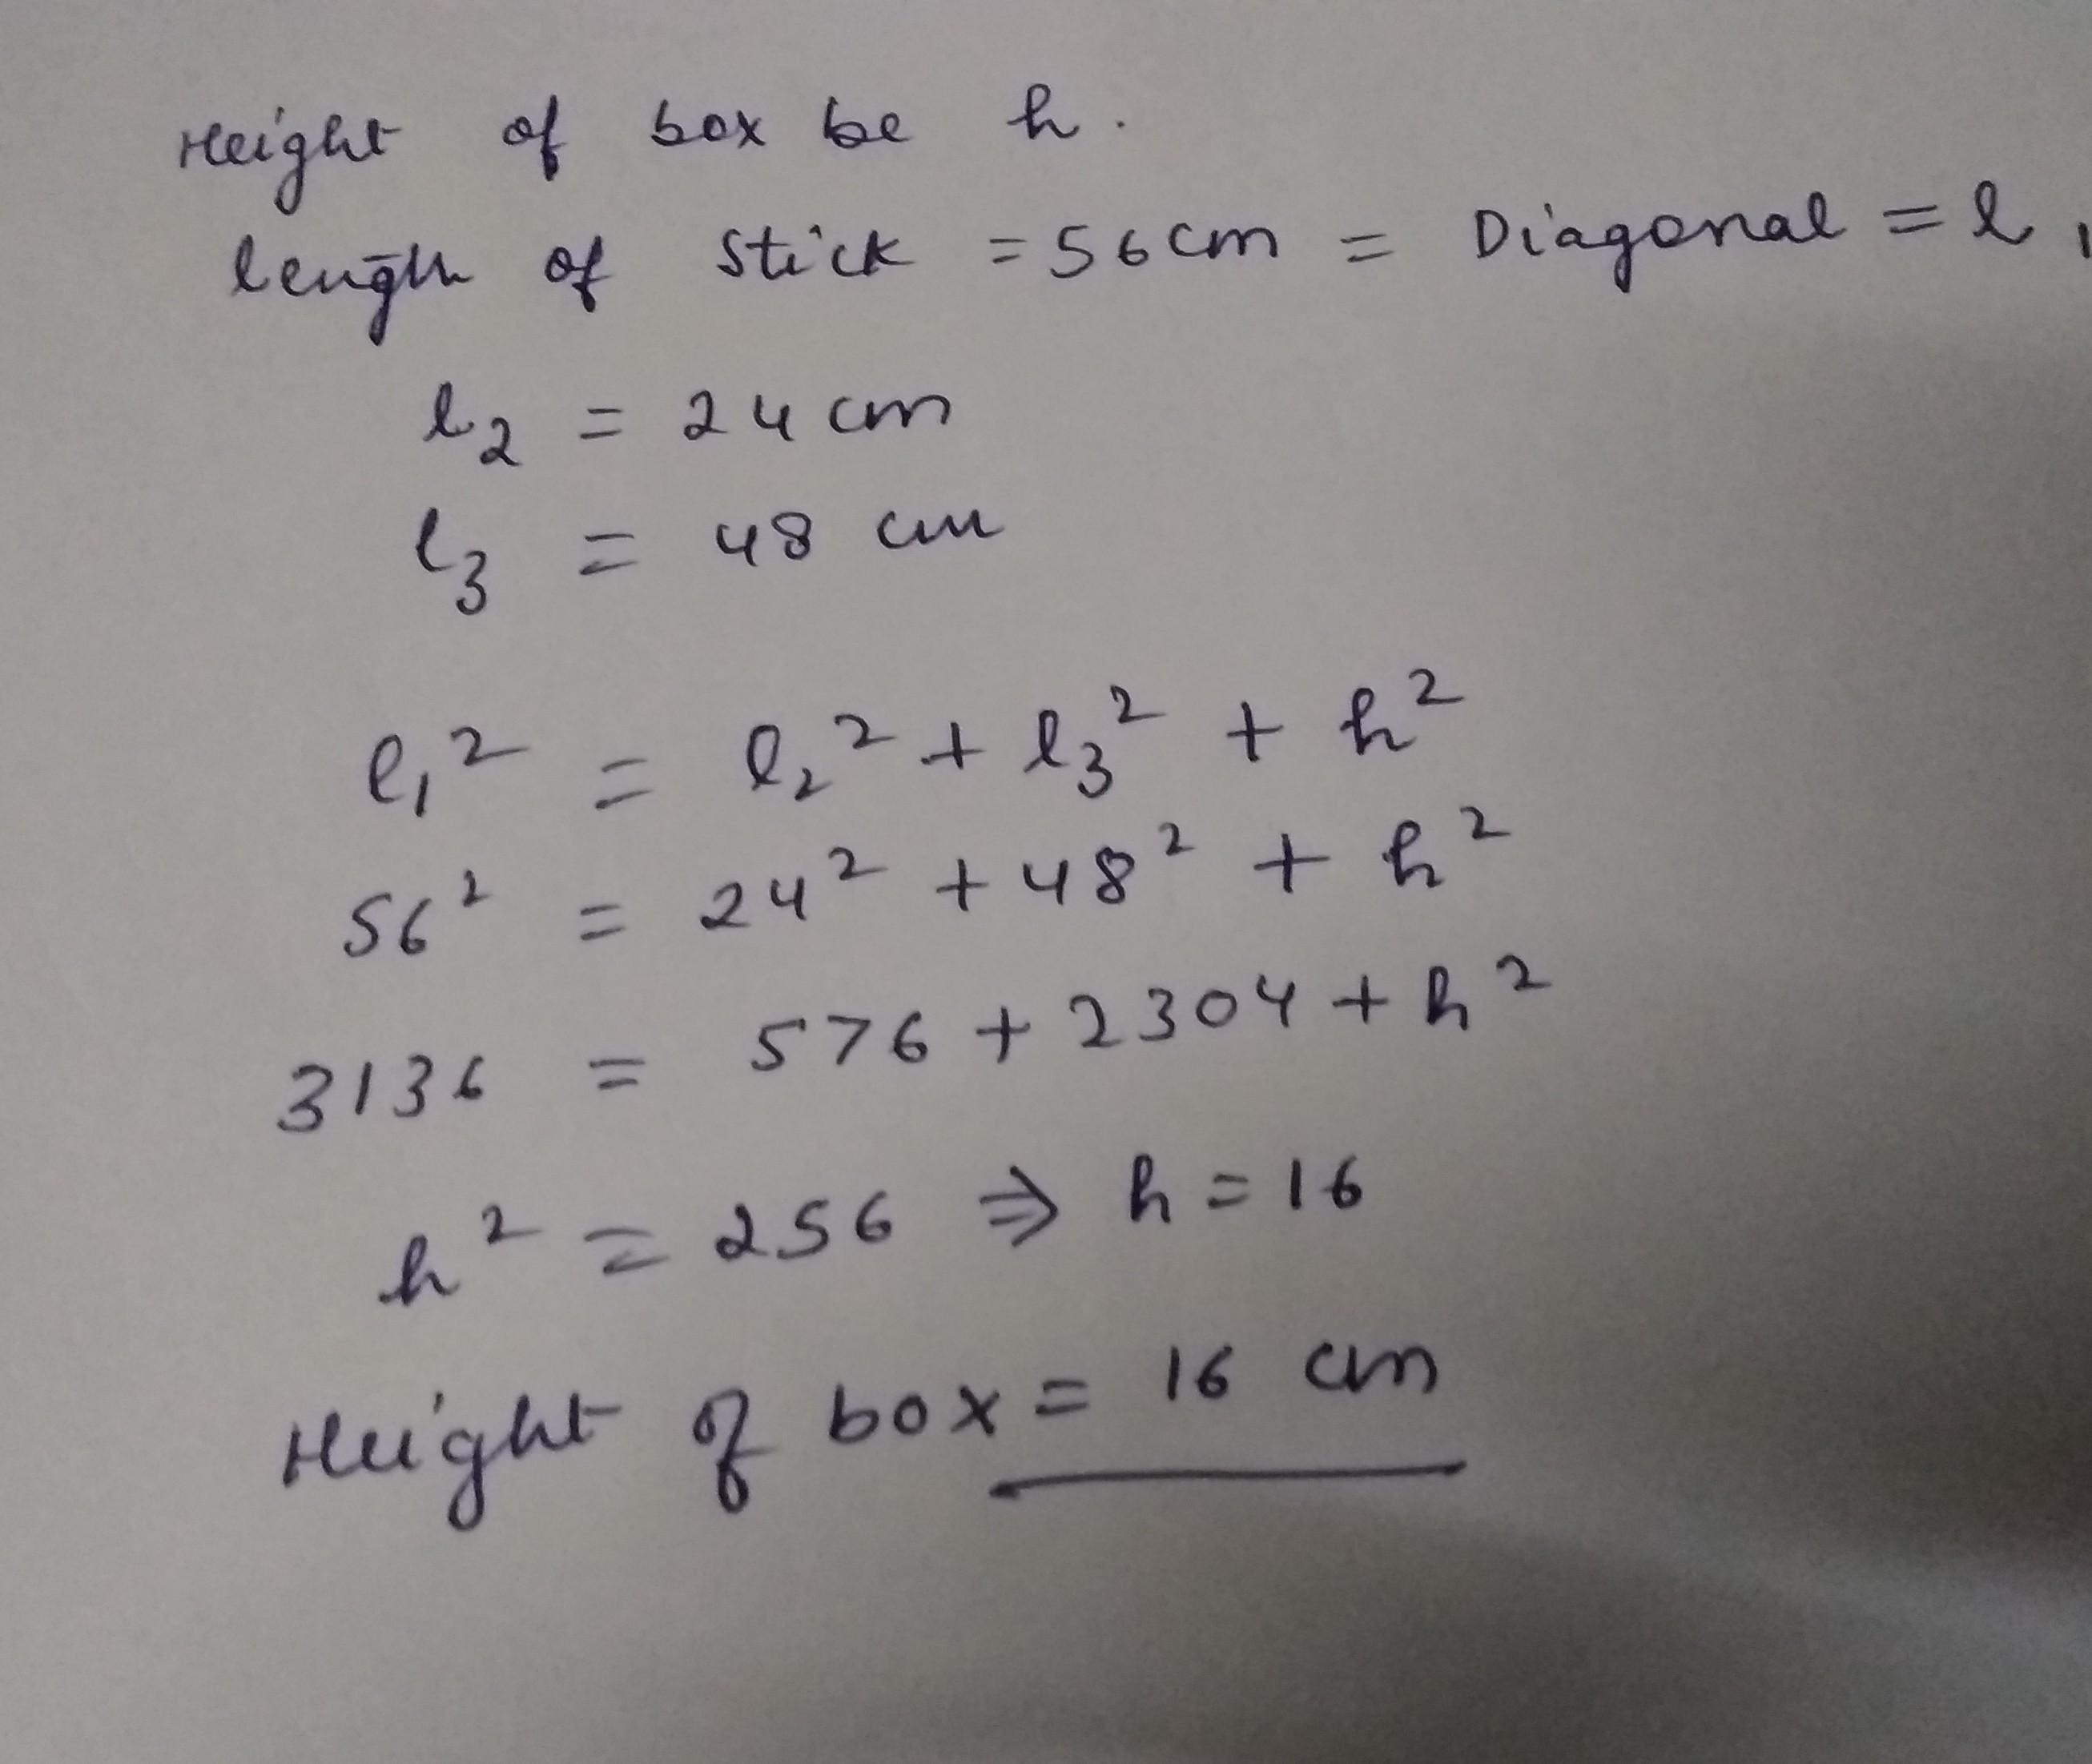 Height of box be h.
length of stick = 56cm = Diagonal = l₁
l₂ = 24 cm
l₃ = 48 cm
l₁² = l₂² + l₃² + h²
56² = 24² + 48² + h²
3136 = 576 + 2304 + h²
h² = 256 ⇒ h = 16
Height of box = 16 cm